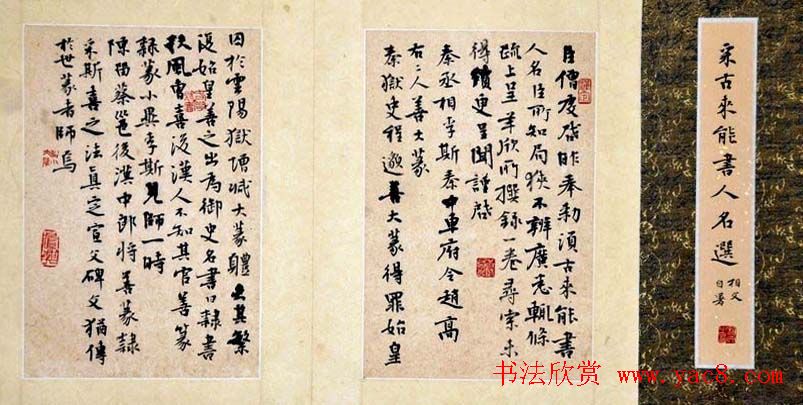 采古来能書人名選
相父
自署
臣僧虔啓昨奉勅須古来能書
人名臣所知局狹不辨廣悉輒條
疏上呈羊欣所撰録一卷尋索未
得續更呈聞謹啓
秦丞相李斯秦中車府令趙高
右二人善大篆
秦獄吏程邈善大篆得罪始皇
囚於雲陽獄增減大篆體去其繁
復始皇善之出為御史名書曰隷書
扶風曹喜後漢人不知其官善篆
隷篆小異李斯見師一時
陳留蔡邕後漢中郎將善篆隷
采斯喜之法真定宣父碑文猶傳
於世篆者師焉
书法欣赏 www.yac8.com